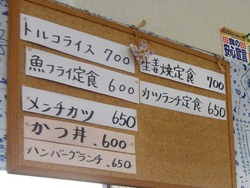 トルコライス 700
魚フライ定食 600
メンチカツ 650
かつ丼 .600
ハンバーグランチ .650
生姜焼定食 700
カツランチ定食 650